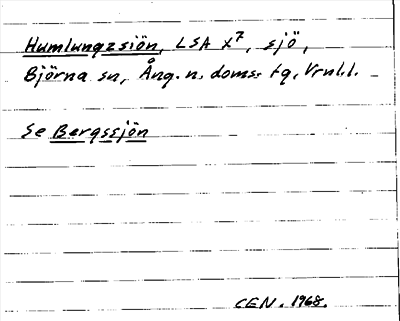 Humlungzsiön, LSA X7, sjö,
Björna sn, Ång. n. doms. tg, Vrnl.l.
Se Bergssjön
CEN. 1968.